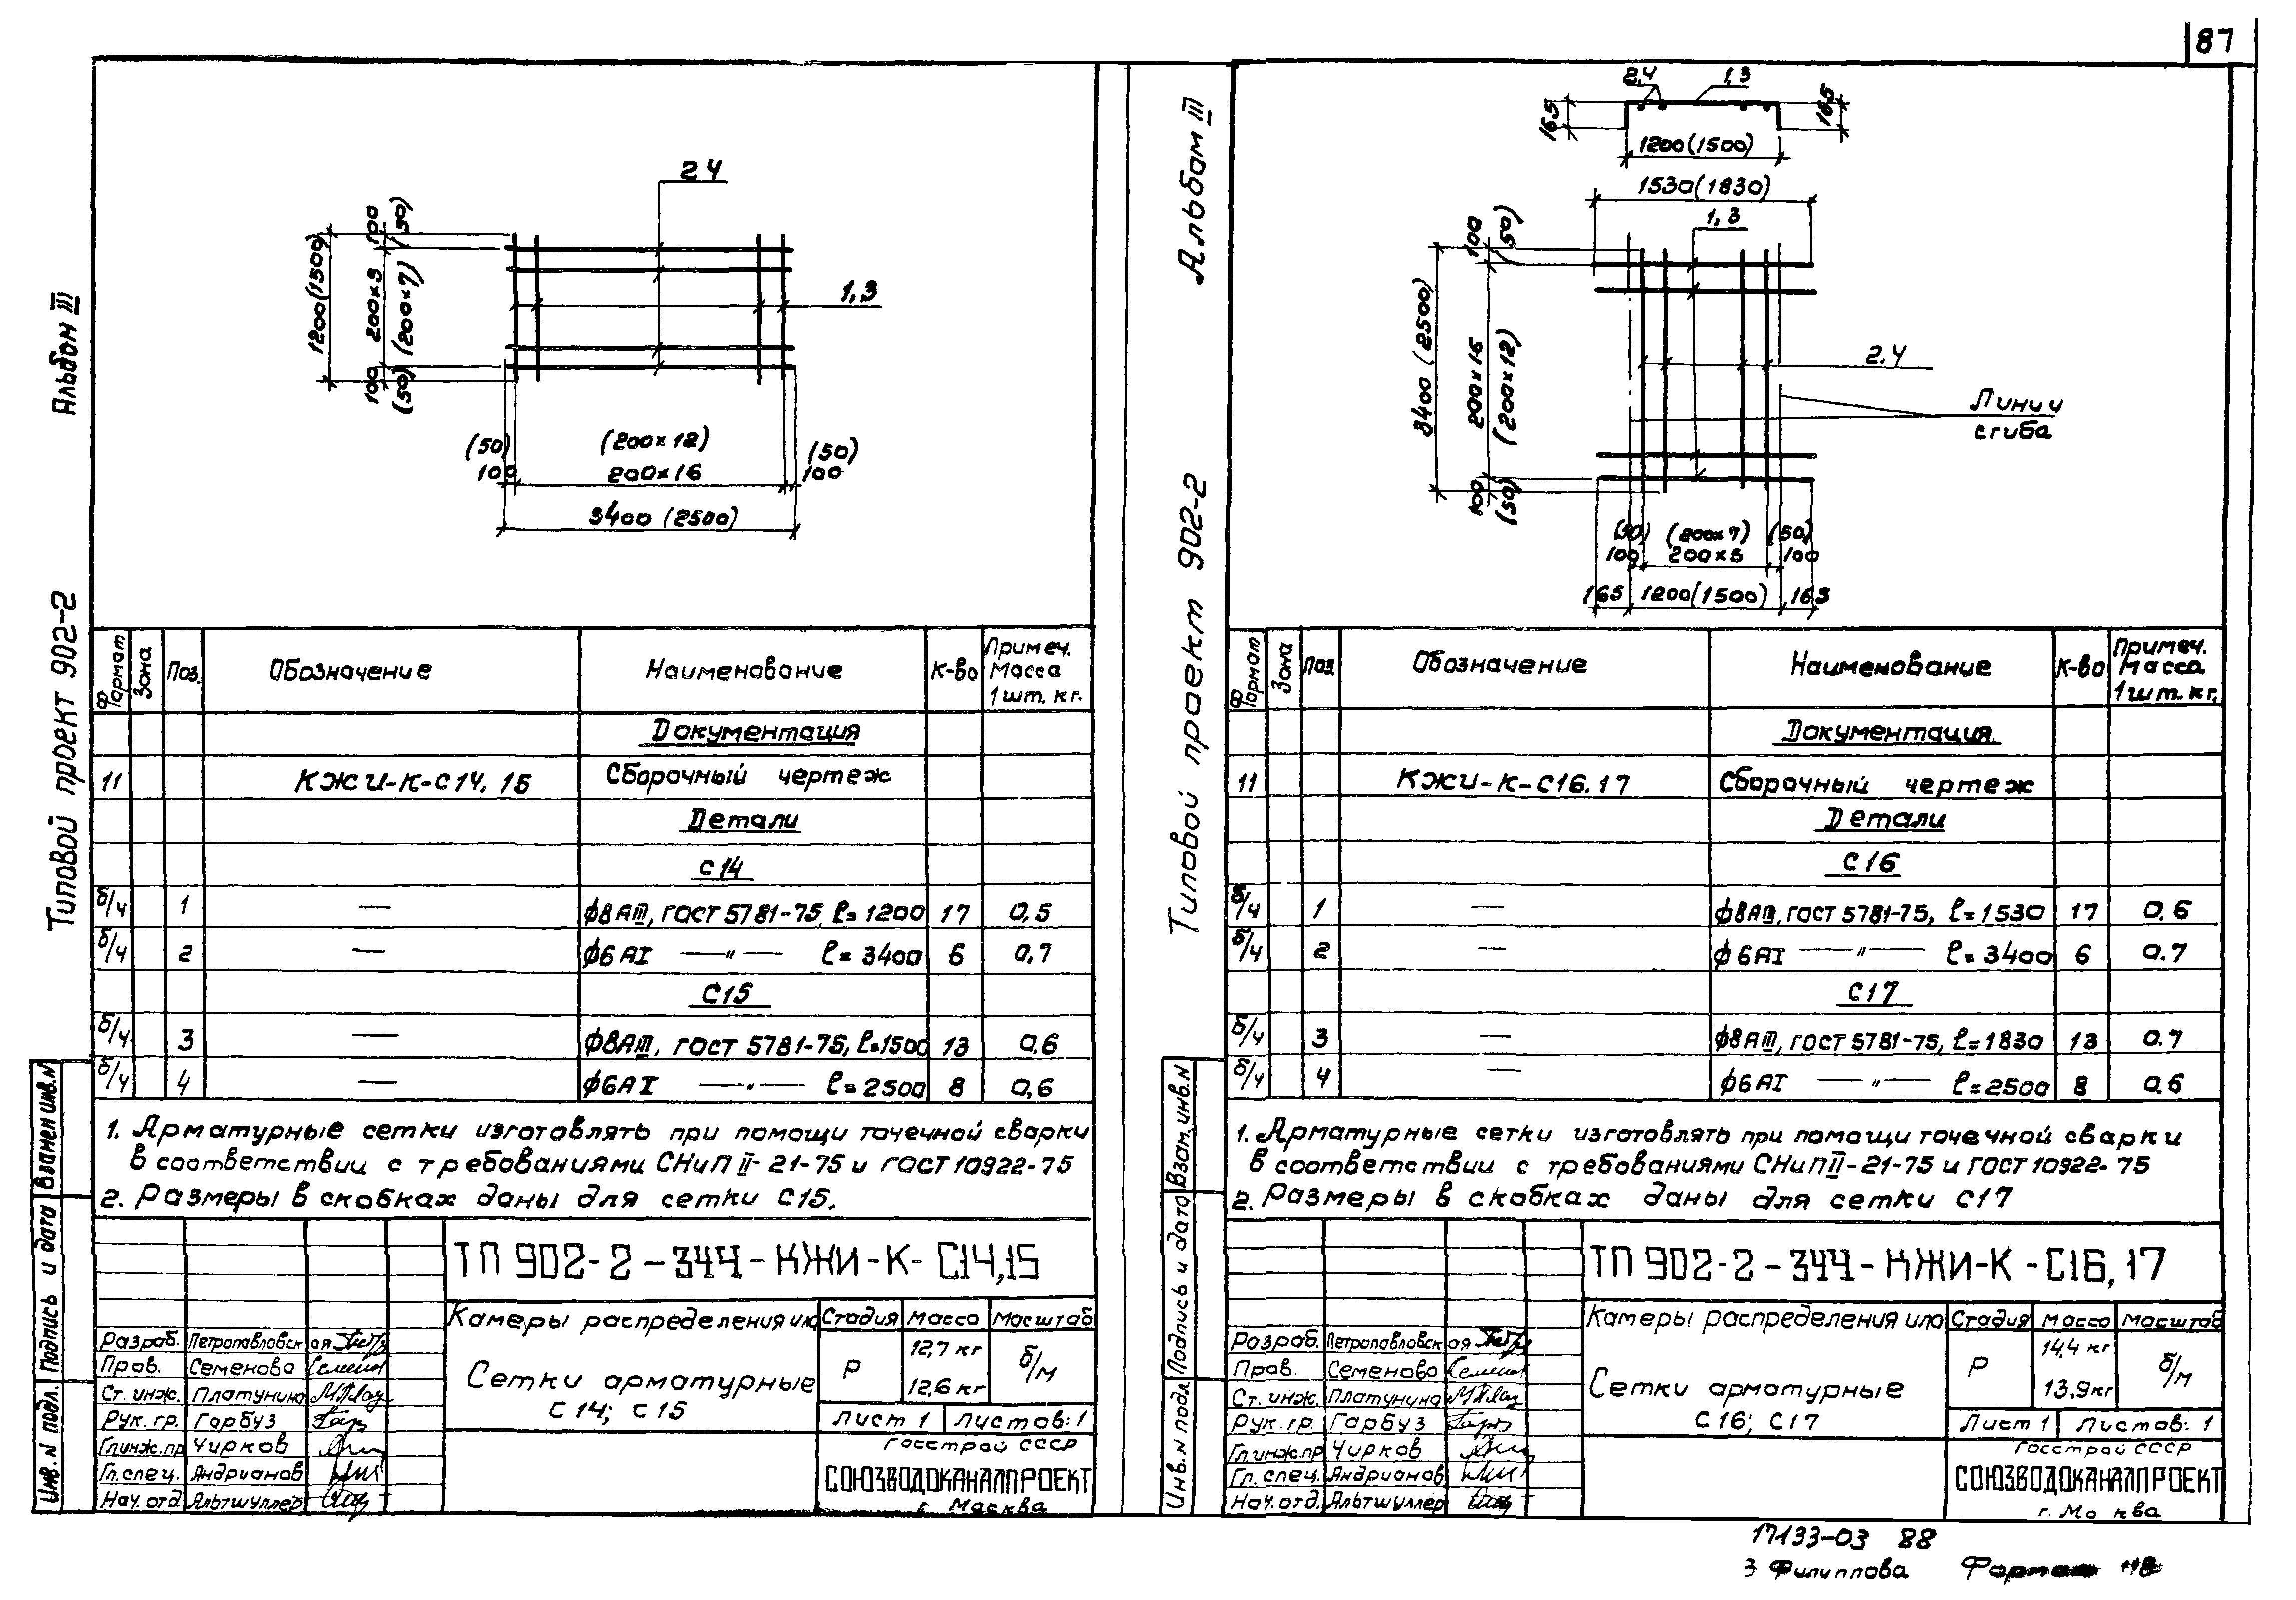 87
Альбом III
Типовой проект 902-2
2 4
1,3
1200(1500)
100
(50)
200×5
(200×7)
100
(50)
(50)
(200×12)
(50)
100
200×16
100
3400 (2500)
Формат
Зона
Поз.
Обозначение
Наименование
К-во
Примеч. Масса 1 шт. кг.
Документация
11 КЖИ-К-С14, 15 Сборочный чертеж
Детали
С14
б/ч 1 — ф8АIII, ГОСТ 5781-75, ℓ=1200 17 0,5
б/ч 2 — ф6АI —"— ℓ=3400 6 0,7
С15
б/ч 3 — ф8АIII, ГОСТ 5781-75, ℓ=1500 13 0,6
б/ч 4 — ф6АI —"— ℓ=2500 8 0,6
1. Арматурные сетки изготовлять при помощи точечной сварки
в соответствии с требованиями СНиП II-21-75 и ГОСТ 10922-75
2. Размеры в скобках даны для сетки С15.
ТП 902-2-344-КЖИ-К-С14,15
Камеры распределения ила
Стадия Масса Масштаб
Сетки арматурные
С14; С15
Р
12,7 кг
12,6 кг
б/м
Лист 1 Листов: 1
Госстрой СССР
СОЮЗВОДОКАНАЛПРОЕКТ
г. Москва
Разраб. Петропавловская
Пров. Семенова
Ст. инж. Платунина
Рук. гр. Гарбуз
Гл.инж.пр Чирков
Гл.спец. Андрианов
Нач. отд. Альтшуллер
Взамен инв.N
Подпись и дата
Инв.N подл.
Альбом III
Типовой проект 902-2
2.4
1,3
165
165
1200(1500)
1530(1830)
1,3
3400 (2500)
100
(50)
200×16
(200×12)
100
(50)
2.4
Линии
сгиба
(50) (200×7) (50)
100 200×5 100
165 1200(1500) 165
Формат
Зона
Поз.
Обозначение
Наименование
К-во
Примеч. Масса 1шт. кг.
Документация
11 КЖИ-К-С16.17 Сборочный чертеж
Детали
С16
б/ч 1 — ф8АIII, ГОСТ 5781-75, ℓ=1530 17 0.6
б/ч 2 — ф6АI —"— ℓ=3400 6 0.7
С17
б/ч 3 — ф8АIII, ГОСТ 5781-75, ℓ=1830 13 0.7
б/ч 4 — ф6АI —"— ℓ=2500 8 0.6
1. Арматурные сетки изготовлять при помощи точечной сварки
в соответствии с требованиями СНиП II-21-75 и ГОСТ 10922-75
2. Размеры в скобках даны для сетки С17
ТП 902-2-344-КЖИ-К-С16,17
Камеры распределения ила
Стадия Масса Масштаб
Сетки арматурные
С16; С17
Р
14,4 кг
13,9кг
б/м
Лист 1 Листов: 1
Госстрой СССР
СОЮЗВОДОКАНАЛПРОЕКТ
г. Москва
Разраб. Петропавловская
Пров. Семенова
Ст. инж. Платунина
Рук. гр. Гарбуз
Гл.инж.пр Чирков
Гл. спец. Андрианов
Нач.отд. Альтшуллер
Взам. инв.N
Подпись и дата
Инв.N подл.
17133-03 88
3 Филиппова Формат